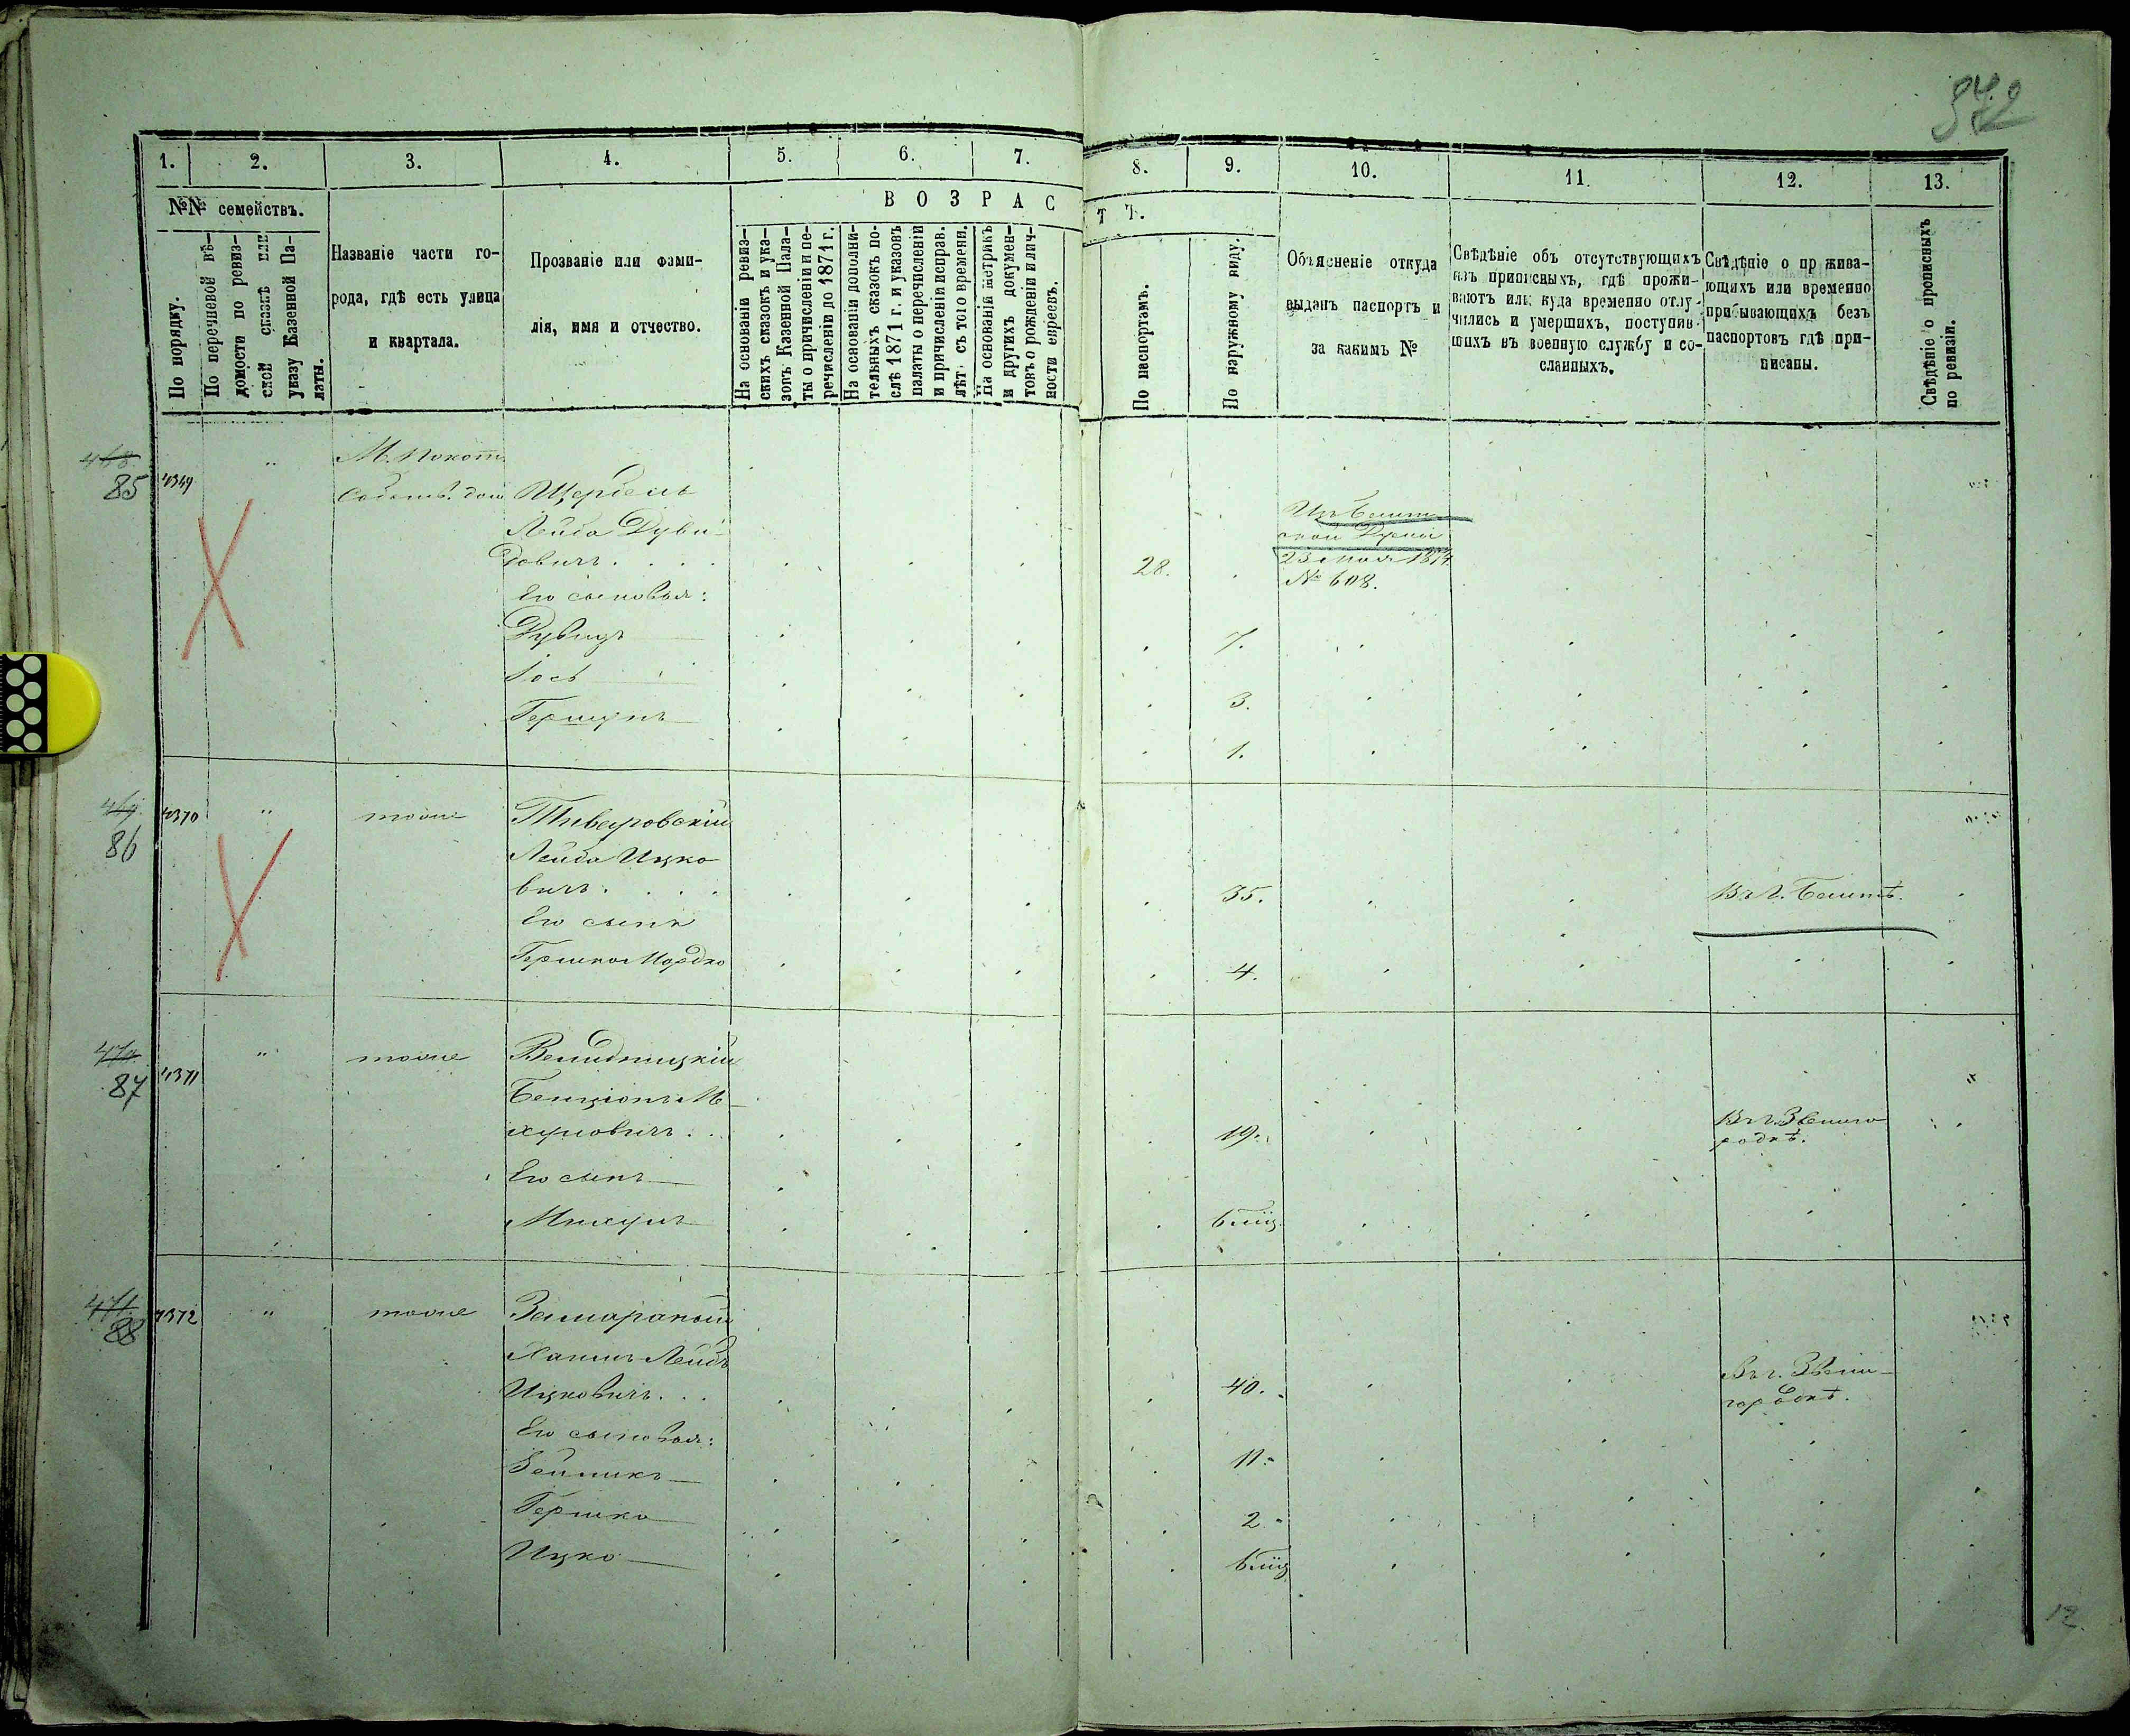 572
1. 2. 3. 4. 5. 6. 7. 8. 9. 10. 11. 12. 13.
№№ семействъ.
По порядку.
По перечневой вѣ-
домости по ревиз-
ской сказкѣ или
указу Казенной Па-
латы.
Названіе части го-
рода, гдѣ есть улица
и квартала.
Прозваніе или фами-
лія, имя и отчество.
ВОЗРАСТЪ.
На основаніи ревиз-
скихъ сказокъ и ука-
зовъ Казенной Пала-
ты о причисленіи и пе-
речисленіи до 1871 г.
На основаніи дополни-
тельныхъ сказокъ по-
слѣ 1871 г. и указовъ
палаты о перечисленіи
и причисленіи исправ.
лѣт. съ того времени.
На основаніи метрикъ
и другихъ докумен-
товъ о рожденіи и лич-
ности евреевъ.
По паспортамъ.
По наружному виду.
Объясненіе откуда
выданъ паспортъ и
за какимъ №
Свѣдѣніе объ отсутствующихъ
изъ приписныхъ, гдѣ прожи-
ваютъ или куда временно отлу-
чились и умершихъ, поступив-
шихъ въ военную службу и со-
сланныхъ.
Свѣдѣніе о прожива-
ющихъ или временно
прибывающихъ безъ
паспортовъ гдѣ при-
писаны.
Свѣдѣніе о прописныхъ
по ревизіи.
85
М. Покот.
Собств. дом
Лейба Дуви-
довичъ . . . . 28.
23 мая 1874
№ 608.
Его сыновья:
Дувидъ 7.
Іось 3.
Гершунъ 1.
86 4370 " тоже Тиверовскій
Лейба Ицко
вичъ . . . . 35.
Его сынъ
Гершко Мордко 4.
87 4371 " тоже
Бенціонъ М
хуновичъ . . 19.
Въ г. Звениго
родкѣ.
Его сынъ
88 4372 " тоже
Лейбъ
Ицковичъ . . . 40.
Въ г. Звени-
городкѣ.
Его сыновья:
Зельникъ 11.
Гершко 2
Ицко
12